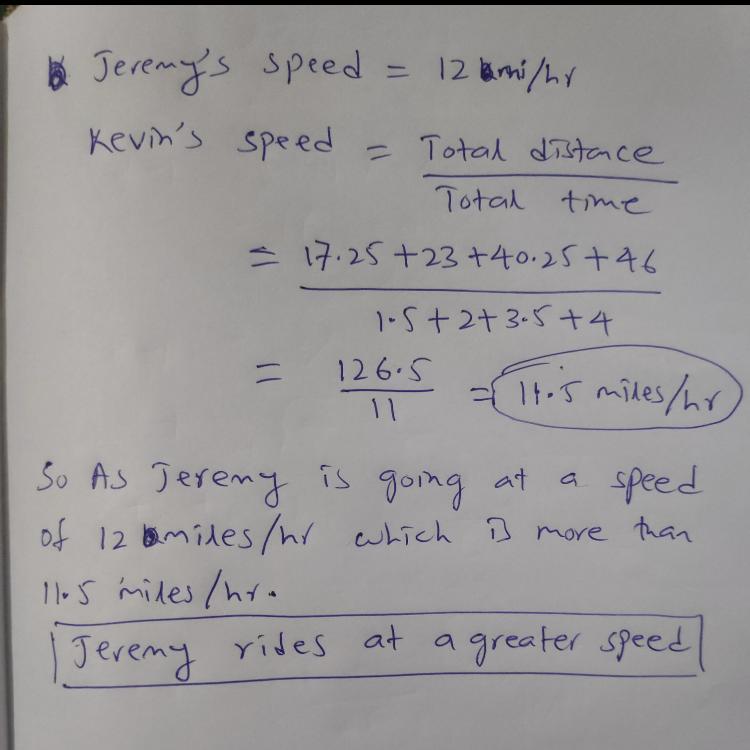 Jeremy's speed = 12 mi/hr
Kevin's speed = Total distance
Total time
= 17.25 + 23 + 40.25 + 46
1.5 + 2 + 3.5 + 4
= 126.5
11
= 11.5 miles/hr
So As Jeremy is going at a speed
of 12 miles/hr which is more than
11.5 miles/hr.
Jeremy rides at a greater speed